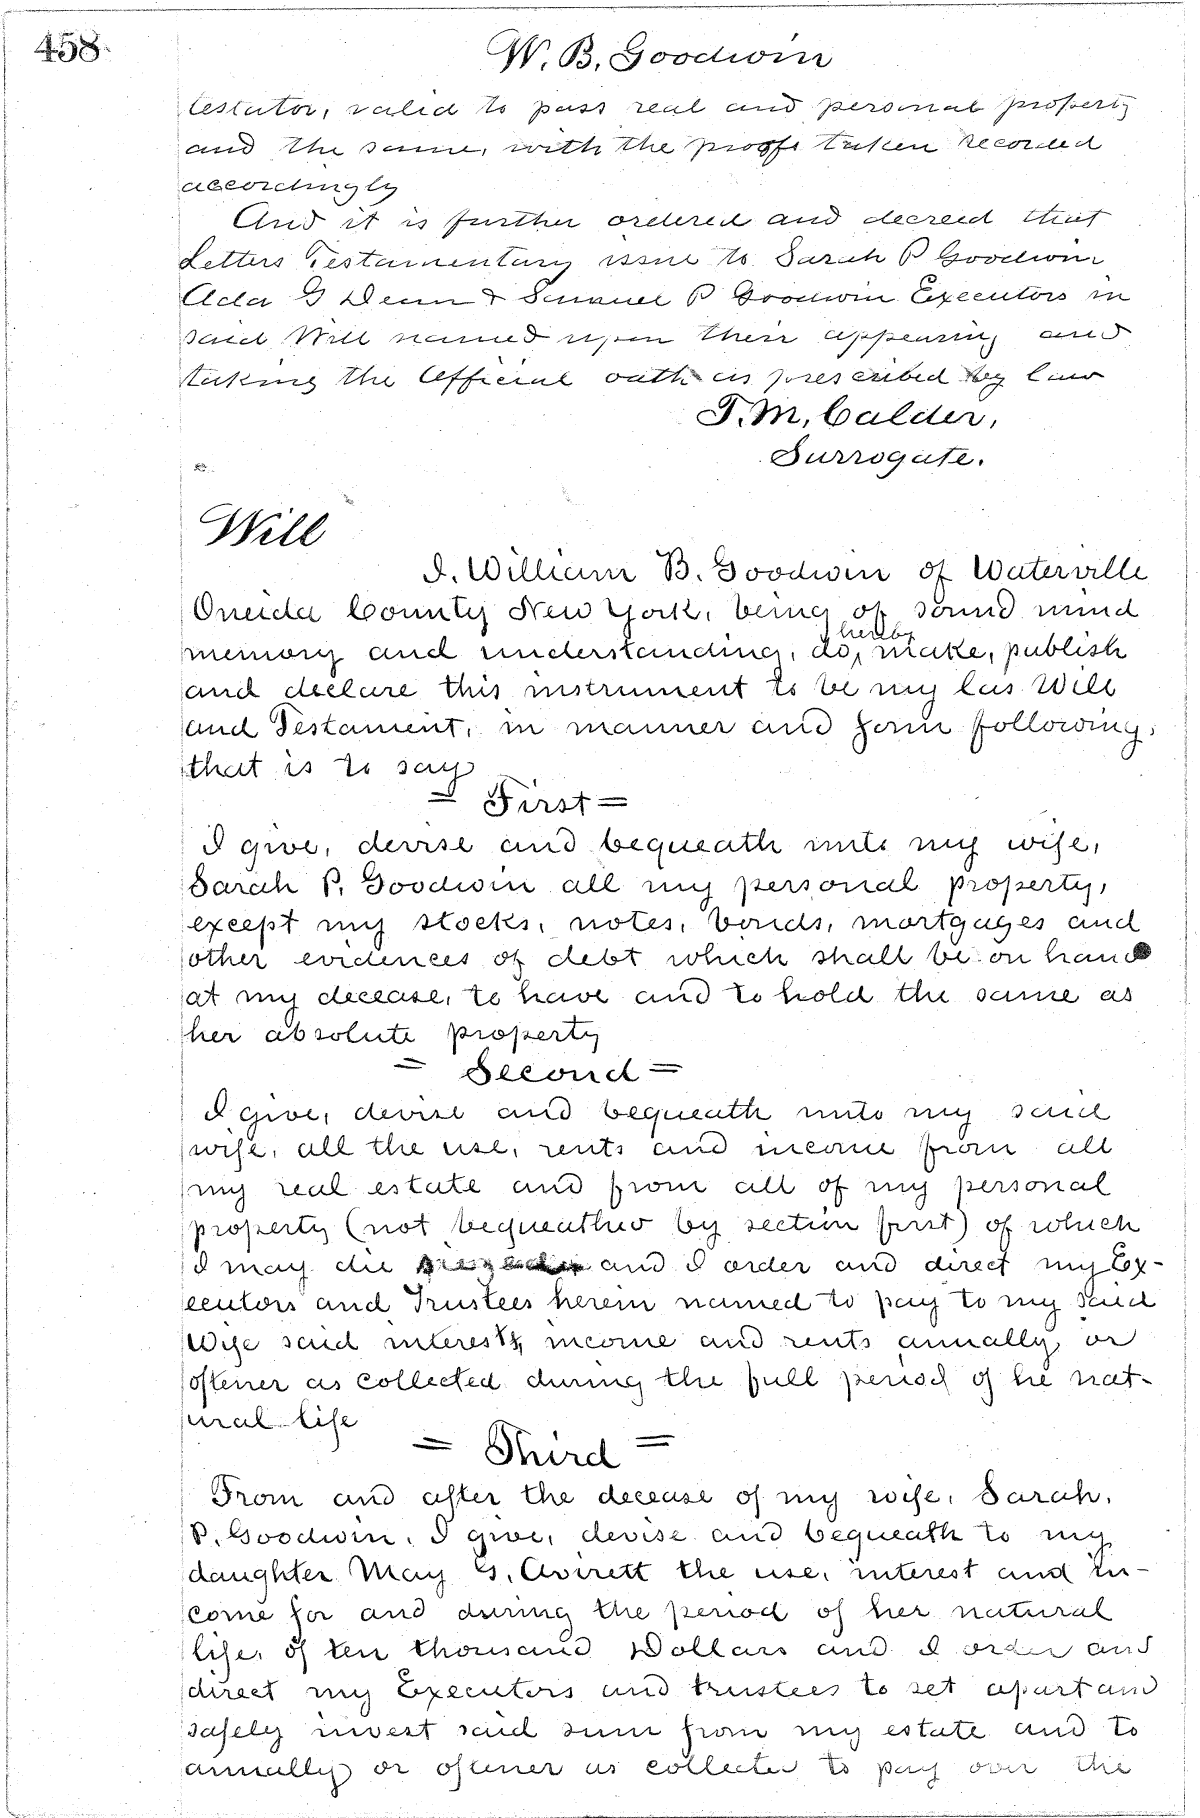 458
W. B. Goodwin
testator, valid to pass real and personal property
and the same, with the proofs taken recorded
accordingly
And it is further ordered and decreed that
Letters Testamentary issue to Sarah P Goodwin
Ada G Dean & Samuel P Goodwin Executors in
said Will named upon their appearing and
taking the Official oath as prescribed by law
T. M. Calder,
Surrogate.
Will
I. William B. Goodwin of Waterville
Oneida County New York, being of sound mind
memory and understanding, do, hereby make, publish
and declare this instrument to be my las Will
and Testament, in manner and form following,
that is to say
= First =
I give, devise and bequeath unto my wife,
Sarah P. Goodwin all my personal property,
except my stocks, notes, bonds, mortgages and
other evidences of debt which shall be on hand
at my decease, to have and to hold the same as
her absolute property
= Second =
I give, devise and bequeath unto my said
wife, all the use, rents and income from all
my real estate and from all of my personal
property (not bequeathed by section first) of which
I may die and I order and direct my Ex-
ecutors and Trustees herein named to pay to my said
Wife said interest, income and rents annually, or
oftener as collected during the full period of he nat-
ural life
= Third =
From and after the decease of my wife, Sarah.
P. Goodwin, I give, devise and bequeath to my
daughter May G. Avirett the use, interest and in-
come for and during the period of her natural
life, of ten thousand Dollars and I order and
direct my Executors and trustees to set apart and
safely invest said sum from my estate and to
annually or oftener as collected to pay over the